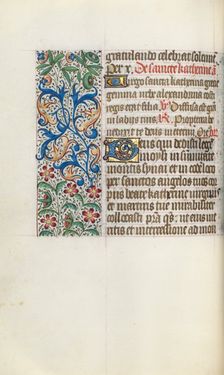 gratulando celebrat solom
per x. De sancte katherina
Virgo sancta katherina grecie
gemma urbe alexandrina costi
regis erat filia V Diffusa est gra
in labiis tuis R. Propterea be
nedixit te deus in eternu Or
Deus qui dedisti legem
moysi in summitate
montis synai et in eodem loco
per sanctos angelos tuos cor
pus beate katherine virginis
et martiris tue mirabiliter
collocasti pta qs ut eius me
ritis et intercessione ad mon